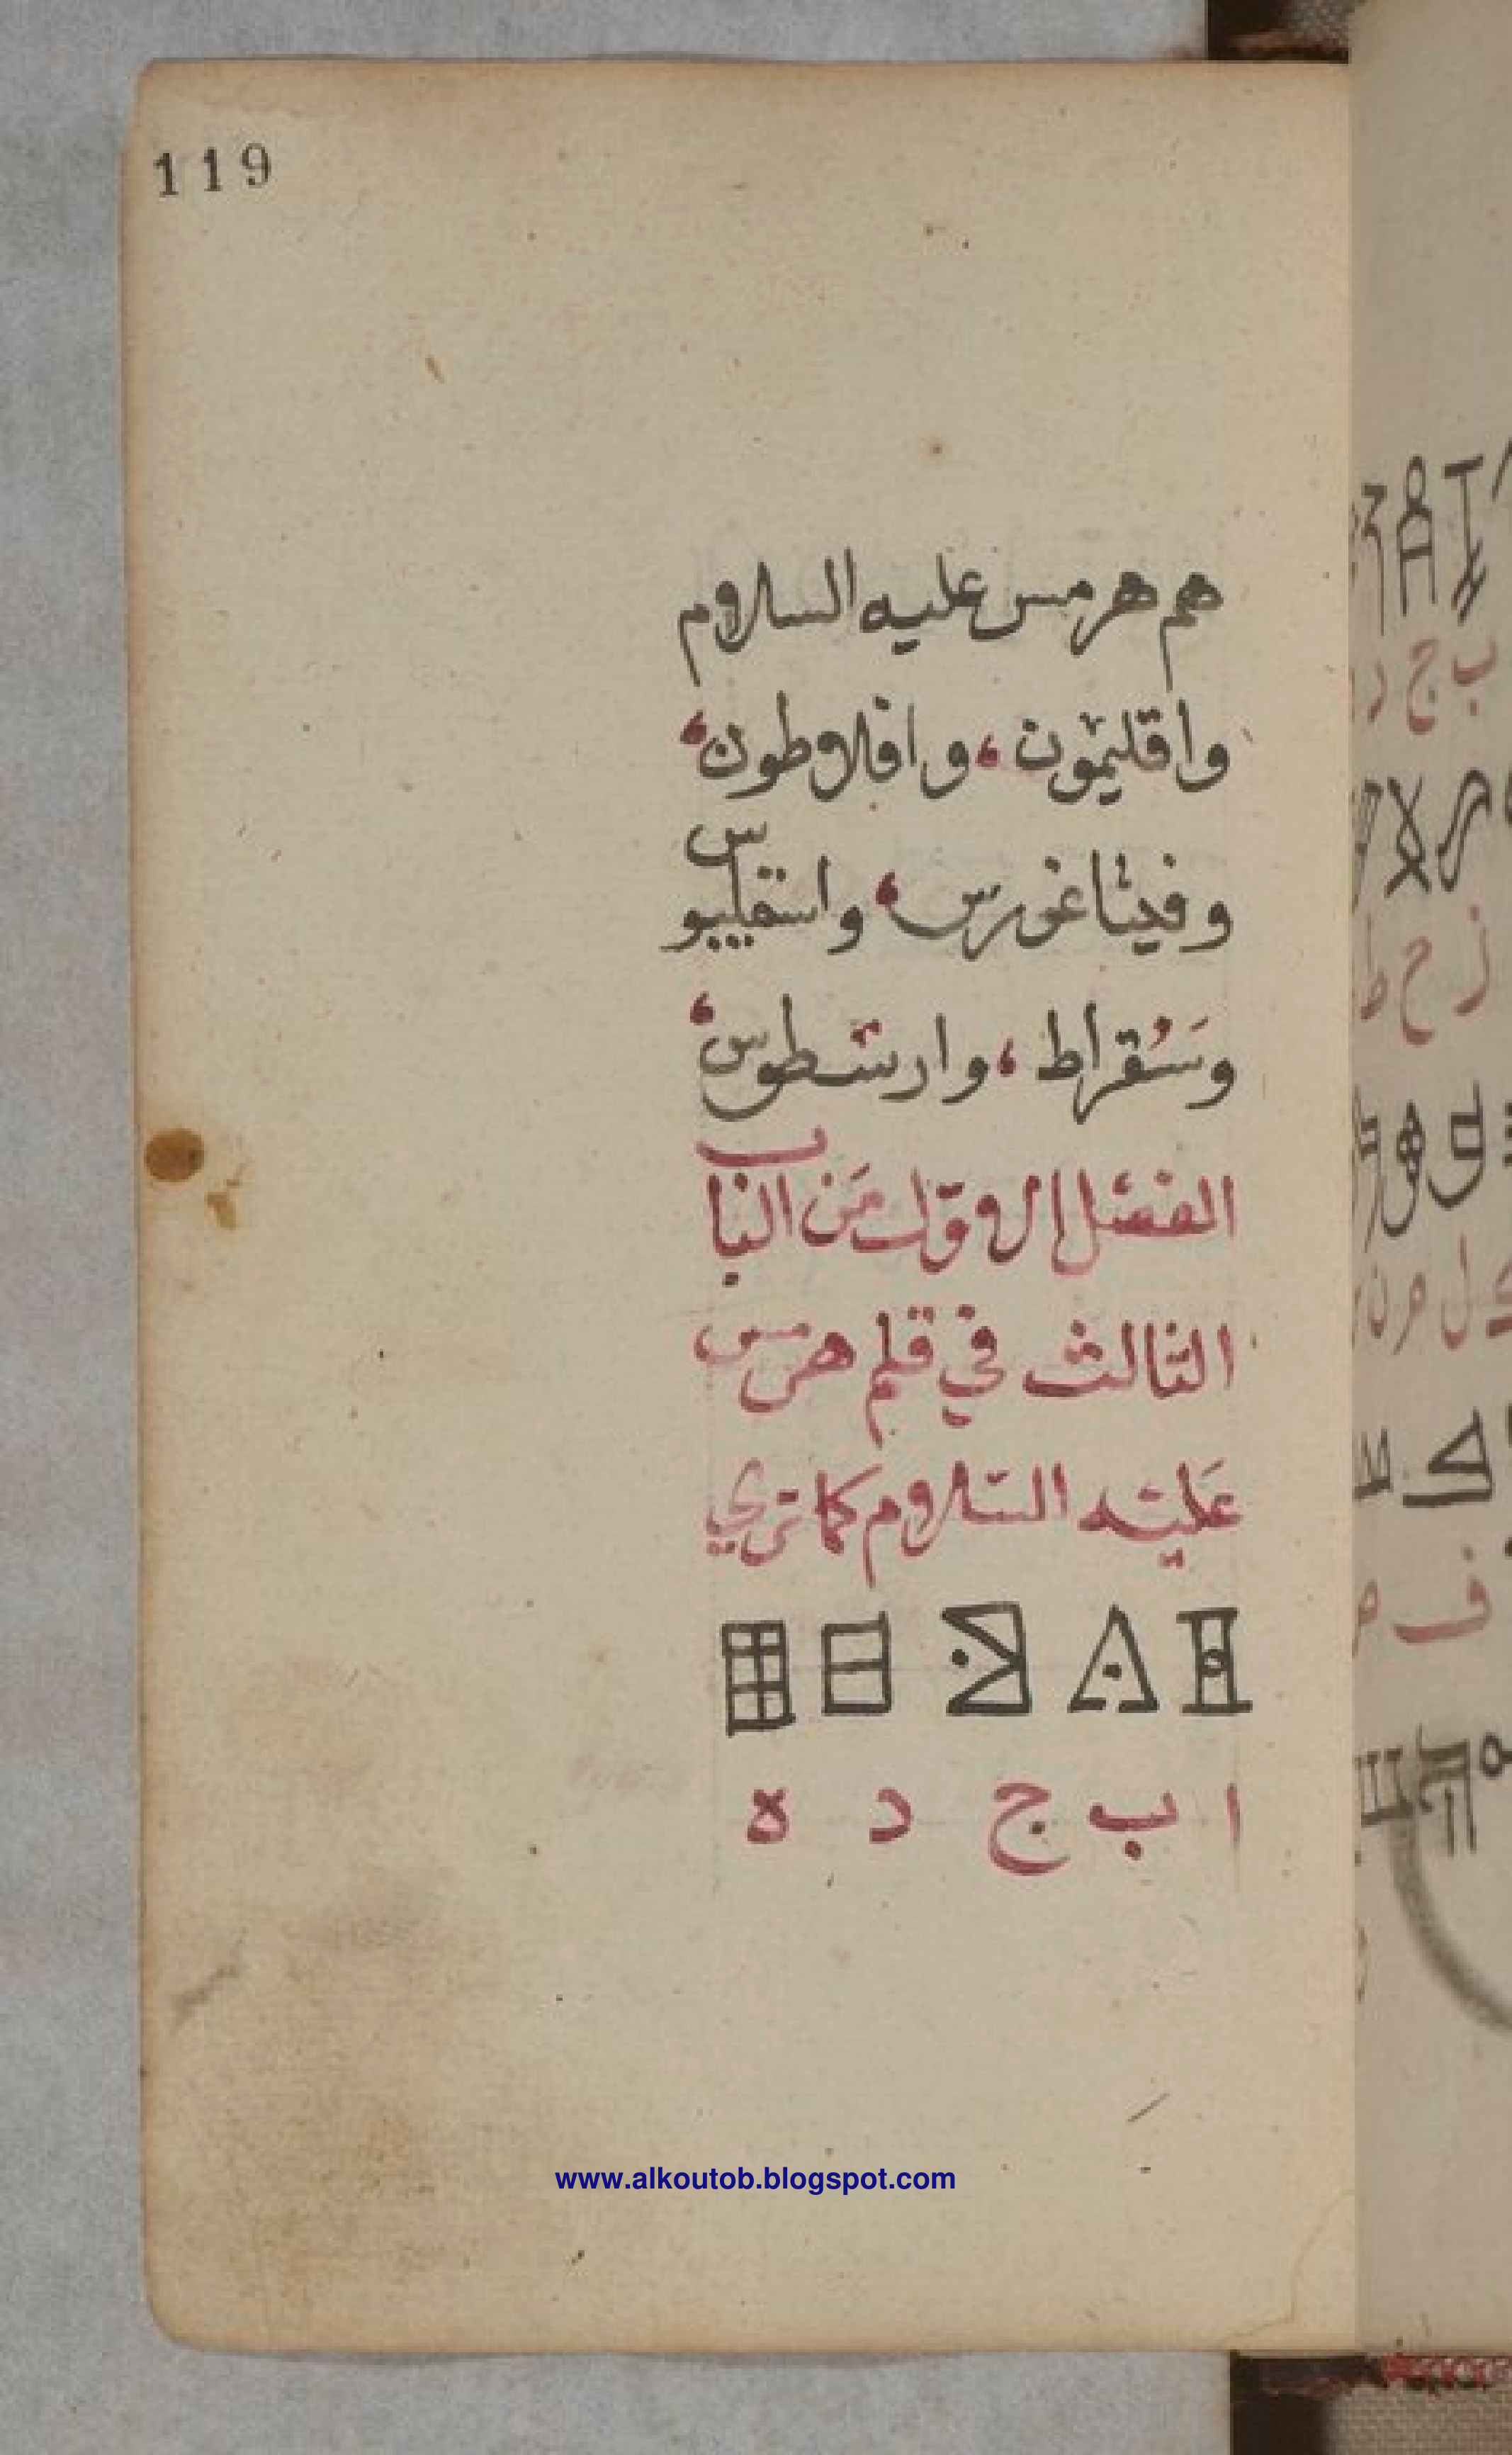 119
هم هرمس عليه السلام
واقليمون، وافلاطون،
وفيثاغورس، واسقليبوس
وسقراط، وارسطوس،
الفصل الاول من الباب
الثالث في قلم هرمس
عليه السلام كما تري
ا ب ج د ه
ب ج د
ز ح ط
www.alkoutob.blogspot.com